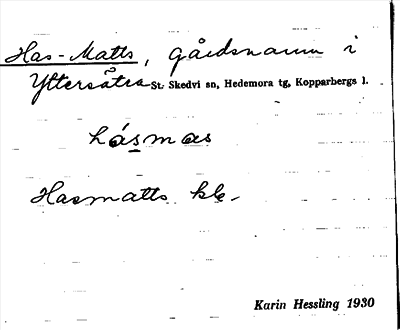 Has-Matts, gårdsnamn i
Yttersätra St. Skedvi sn, Hedemora tg, Kopparbergs l.
hásmas
Hasmatts kk.
Karin Hessling 1930